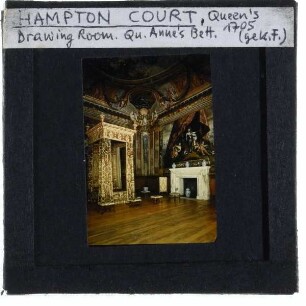 HAMPTON COURT, Queen's
Drawing Room. Qu. Anne's Bett. 1705
(gek.F.)